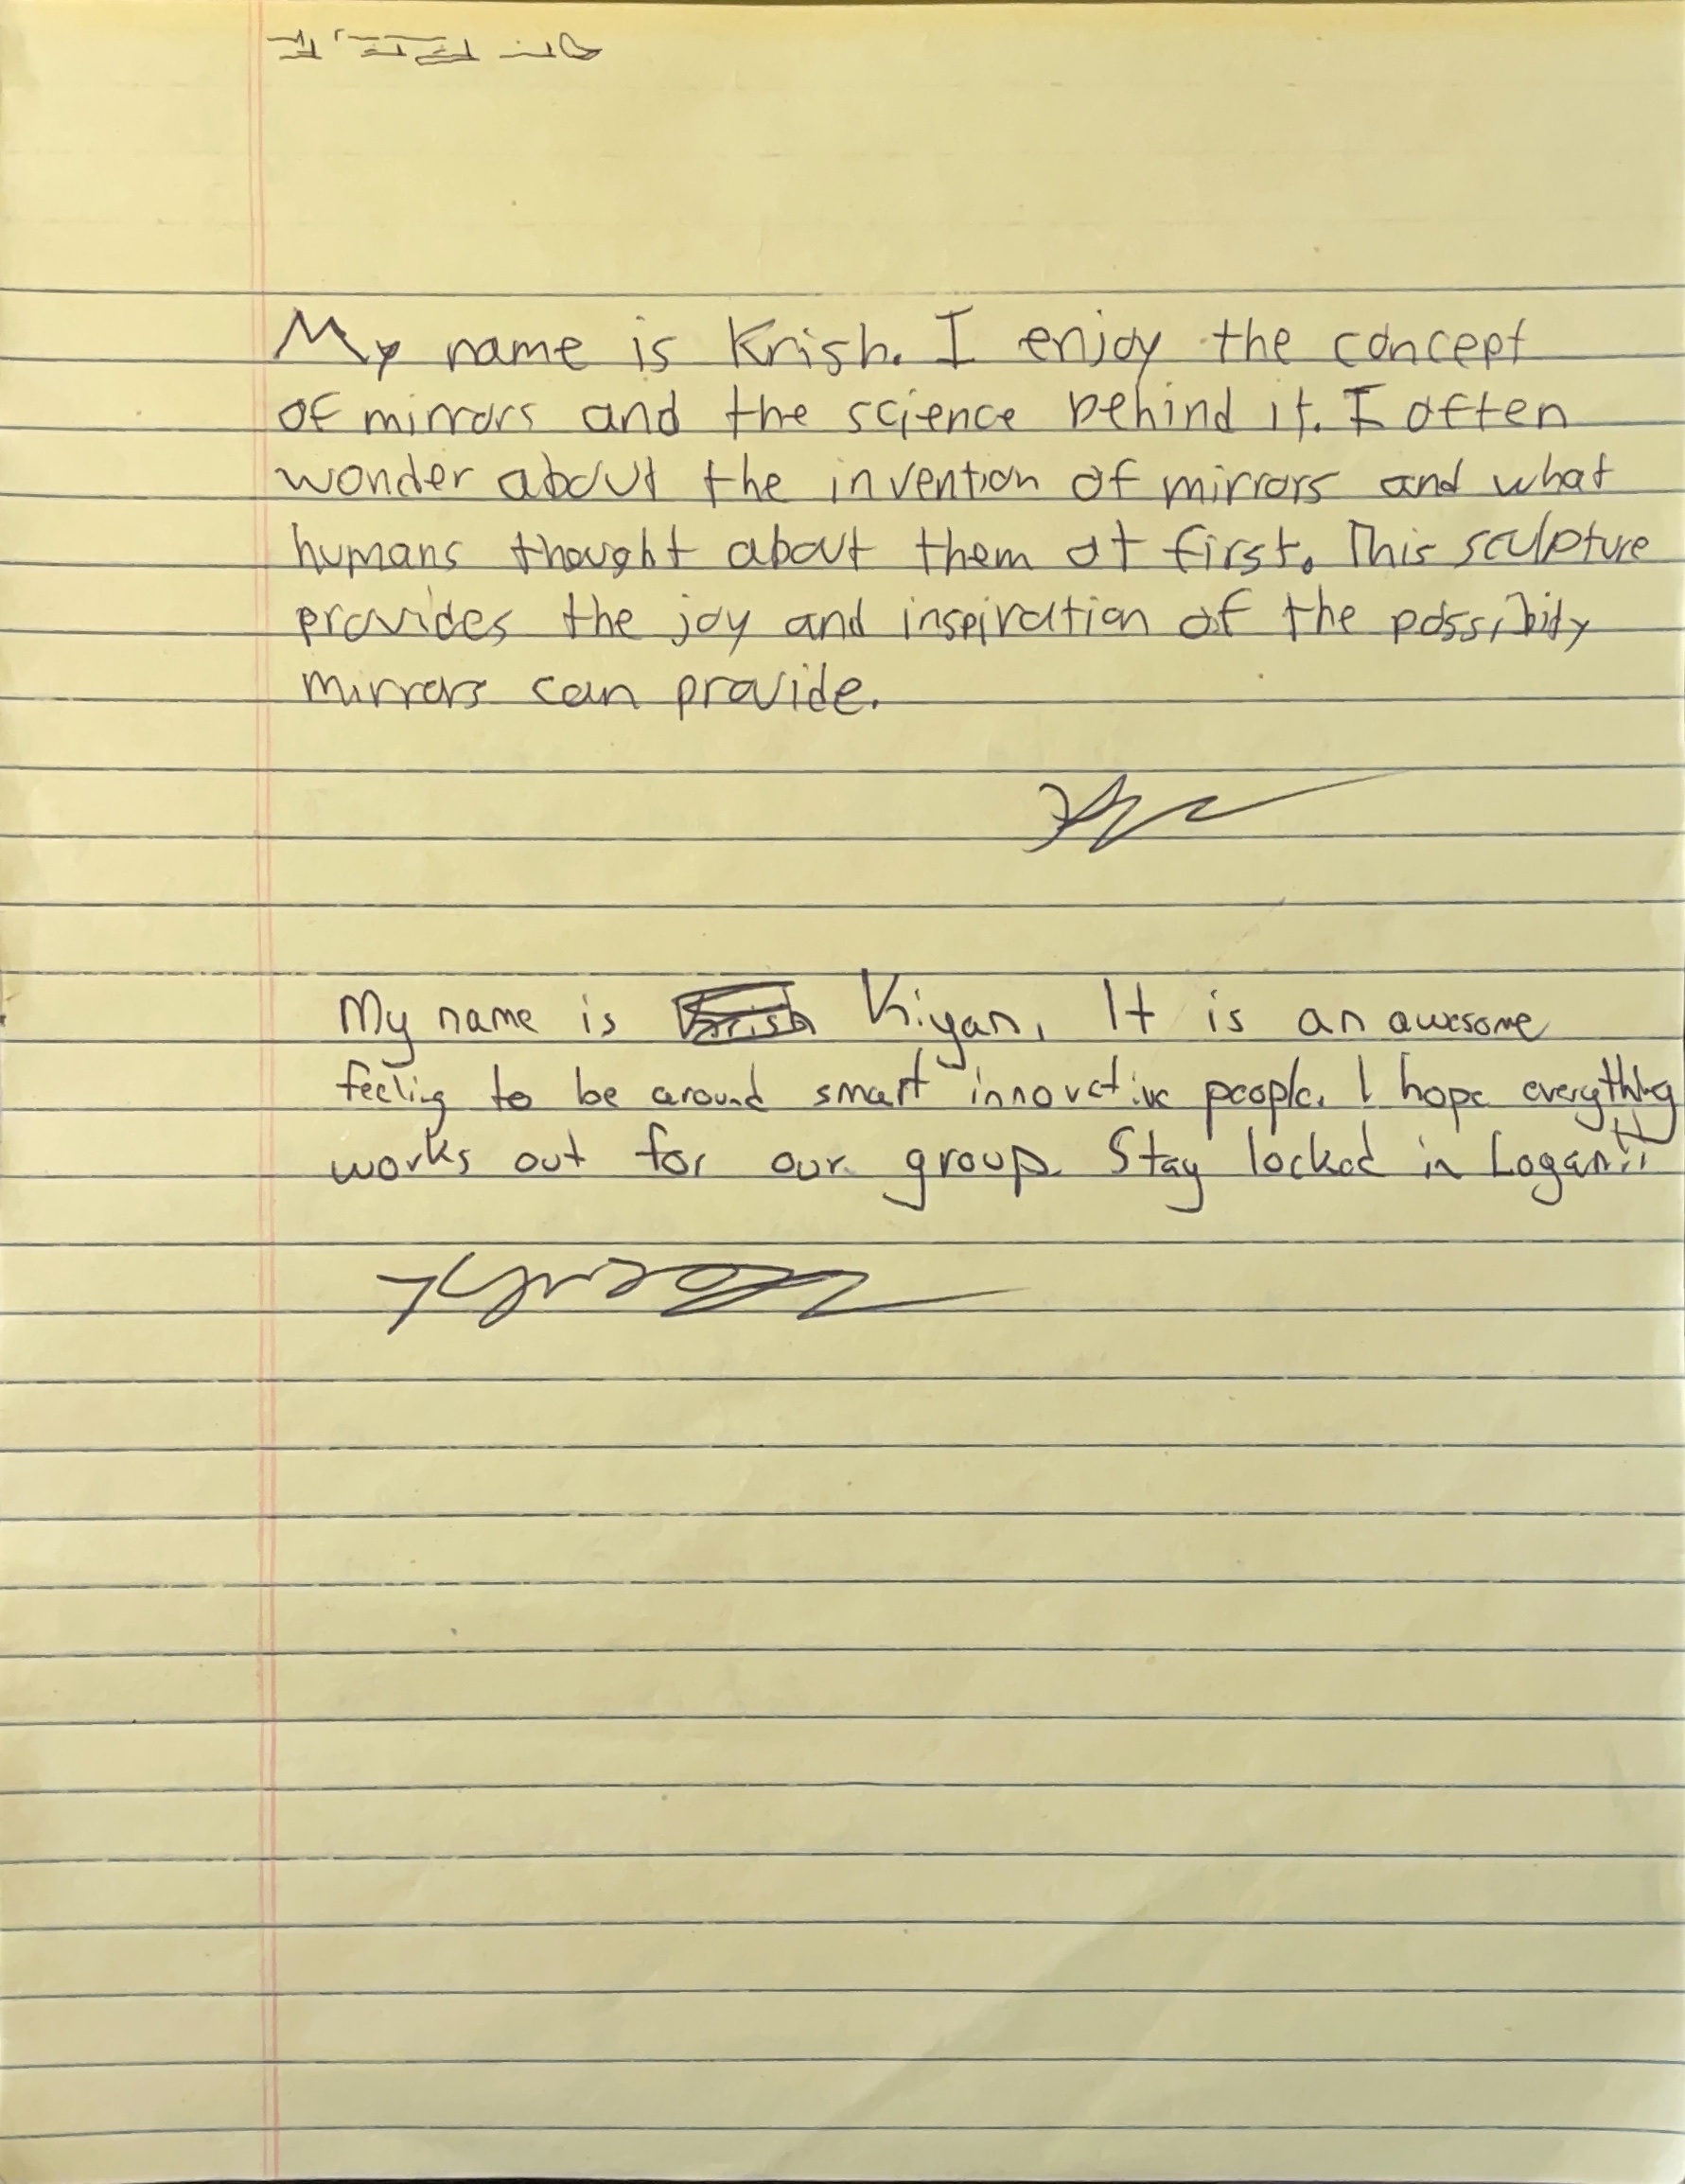 My name is Krish. I enjoy the concept
of mirrors and the science behind it. I often
wonder about the invention of mirrors and what
humans thought about them at first. This sculpture
provides the joy and inspiration of the possibity
mirrors can provide.
My name is Krish Kiyan. It is an awesome
feeling to be around smart innovative people. I hope everything
works out for our group. Stay locked in Logan!!